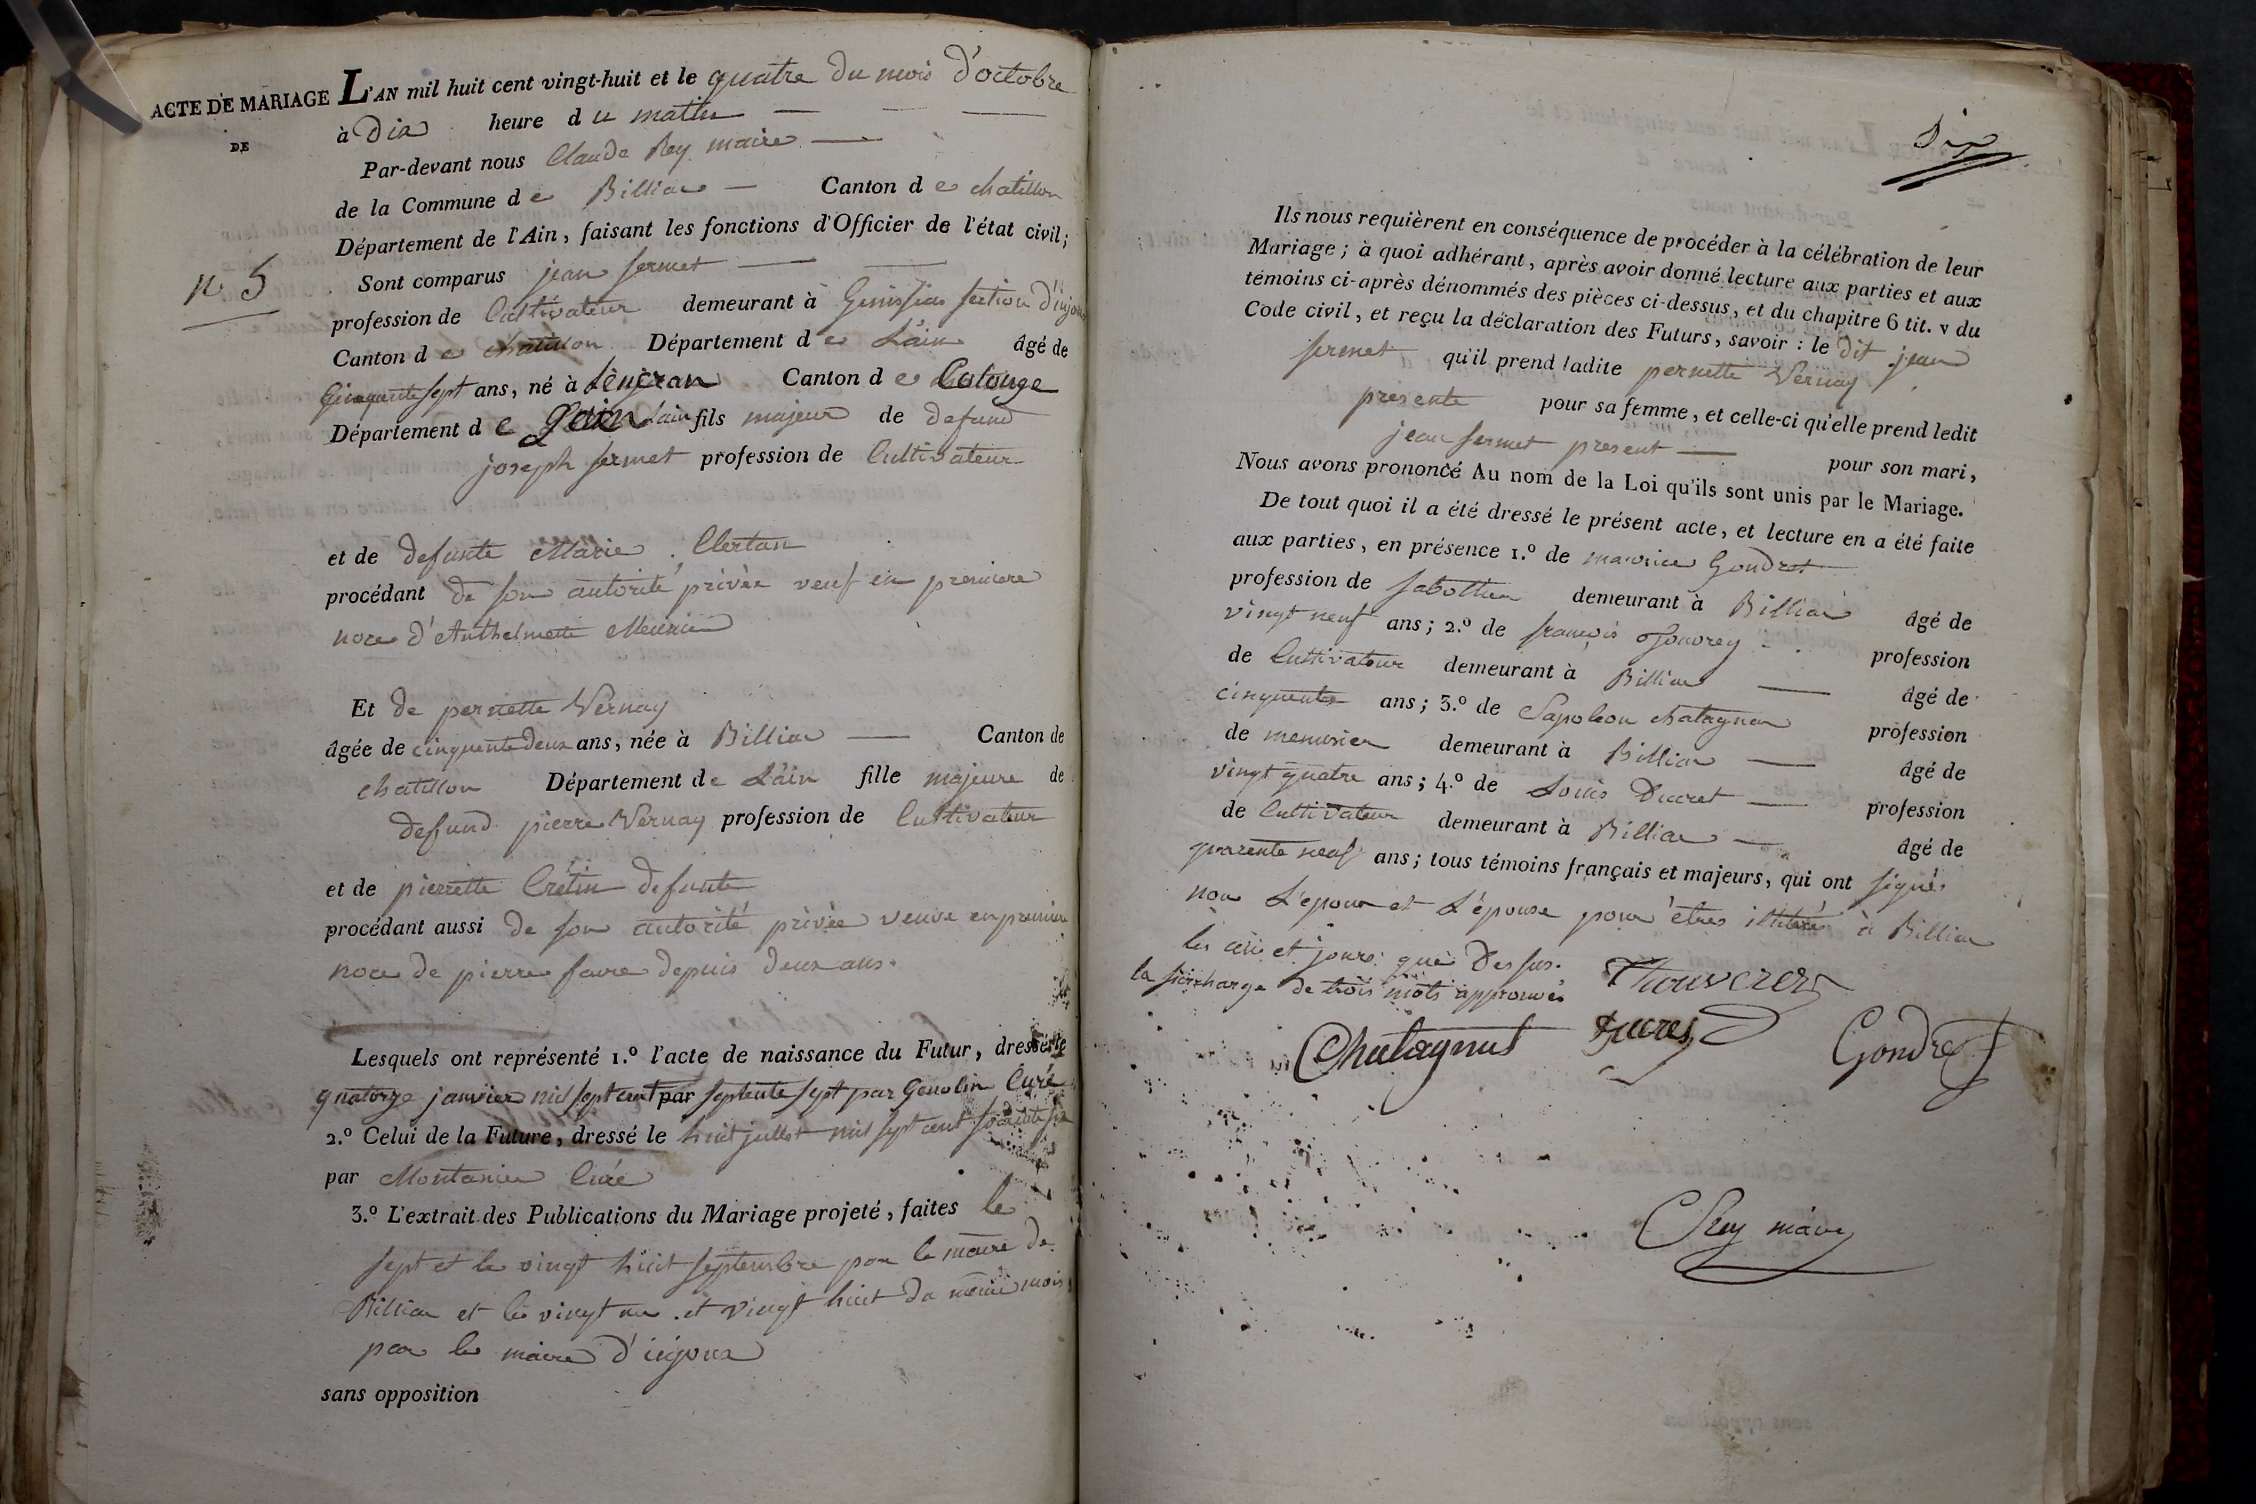 ACTE DE MARIAGE
DE
n° 5
L'AN mil huit cent vingt-huit et le quatre du mois d'octobre
à Dix heure du matin
Par-devant nous Claude Rey maire
de la Commune de Billiac Canton de chatillon
Département de l'Ain, faisant les fonctions d'Officier de l'état civil;
Sont comparus jean fermet
profession de Cultivateur demeurant à Genissiac section d'injoux
Canton de chatillon Département de L'ain âgé de
Cinquante sept ans, né à Lengran Canton de Colonge
Département de Lain fils majeur de defund
joseph fermet profession de Cultivateur
et de defunte Marie Clertan
procédant de son autorité privée veuf en premiere
noce d'Anthelmette Meunier
Et de pernette Vernay
âgée de cinquante deux ans, née à Billiac Canton de
chatillon Département de L'ain fille majeure de
defund pierre Vernay profession de Cultivateur
et de pierrette Cretin defunte
procédant aussi de son autorité privée veuve en premiere
noce de pierre favre depuis deux ans.
Lesquels ont représenté 1.º l'acte de naissance du Futur, dressé le
quatorze janvier mil sept cent par septente sept par Genolin Curé
2.º Celui de la Future, dressé le huit jullet mil sept cent
par Montanier Curé
3.º L'extrait des Publications du Mariage projeté, faites le
sept et le vingt huit septembre par le maire de
Billiac et les vingt un et vingt huit du même mois
par le maire d'injoux
sans opposition
Dix
Ils nous requièrent en conséquence de procéder à la célébration de leur
Mariage; à quoi adhérant, après avoir donné lecture aux parties et aux
témoins ci-après dénommés des pièces ci-dessus, et du chapitre 6 tit. v du
Code civil, et reçu la déclaration des Futurs, savoir: le dit jean
fermet qu'il prend ladite pernette Vernay
presente pour sa femme, et celle-ci qu'elle prend ledit
jean fermet present pour son mari,
Nous avons prononcé Au nom de la Loi qu'ils sont unis par le Mariage.
De tout quoi il a été dressé le présent acte, et lecture en a été faite
aux parties, en présence 1.º de maurice Gondret
profession de sabottier demeurant à Billiac âgé de
vingt neuf ans; 2.º de françois profession
de Cultivateur demeurant à Billiac âgé de
cinquente ans; 3.º de Napoleon chatagnat profession
de menusier demeurant à Billiac âgé de
vingt quatre ans; 4.º de Louis Ducret profession
de Cultivateur demeurant à Billiac âgé de
quarente neuf ans; tous témoins français et majeurs, qui ont signés
non L'epoux et L'épouse pour êtres illiteré à Billiac
les ans et jours que Dessus.
la surcharge de trois mots approuvés
Chatagnat Ducret Gondret
C Rey maire